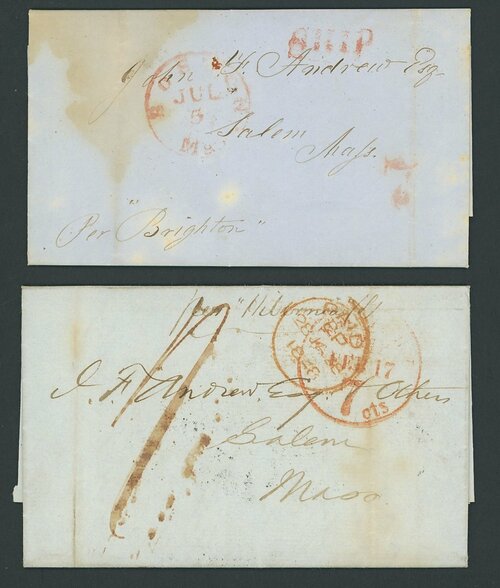 SHIP
John F. Andrew Esq.
BOSTON
JUL
5
Ms
Salem
Mass.
Per "Brighton"
per "Hibernia"
PAID
FEB 17
7
cts
J. F. Andrew, Esq. & Others
Salem
Mass